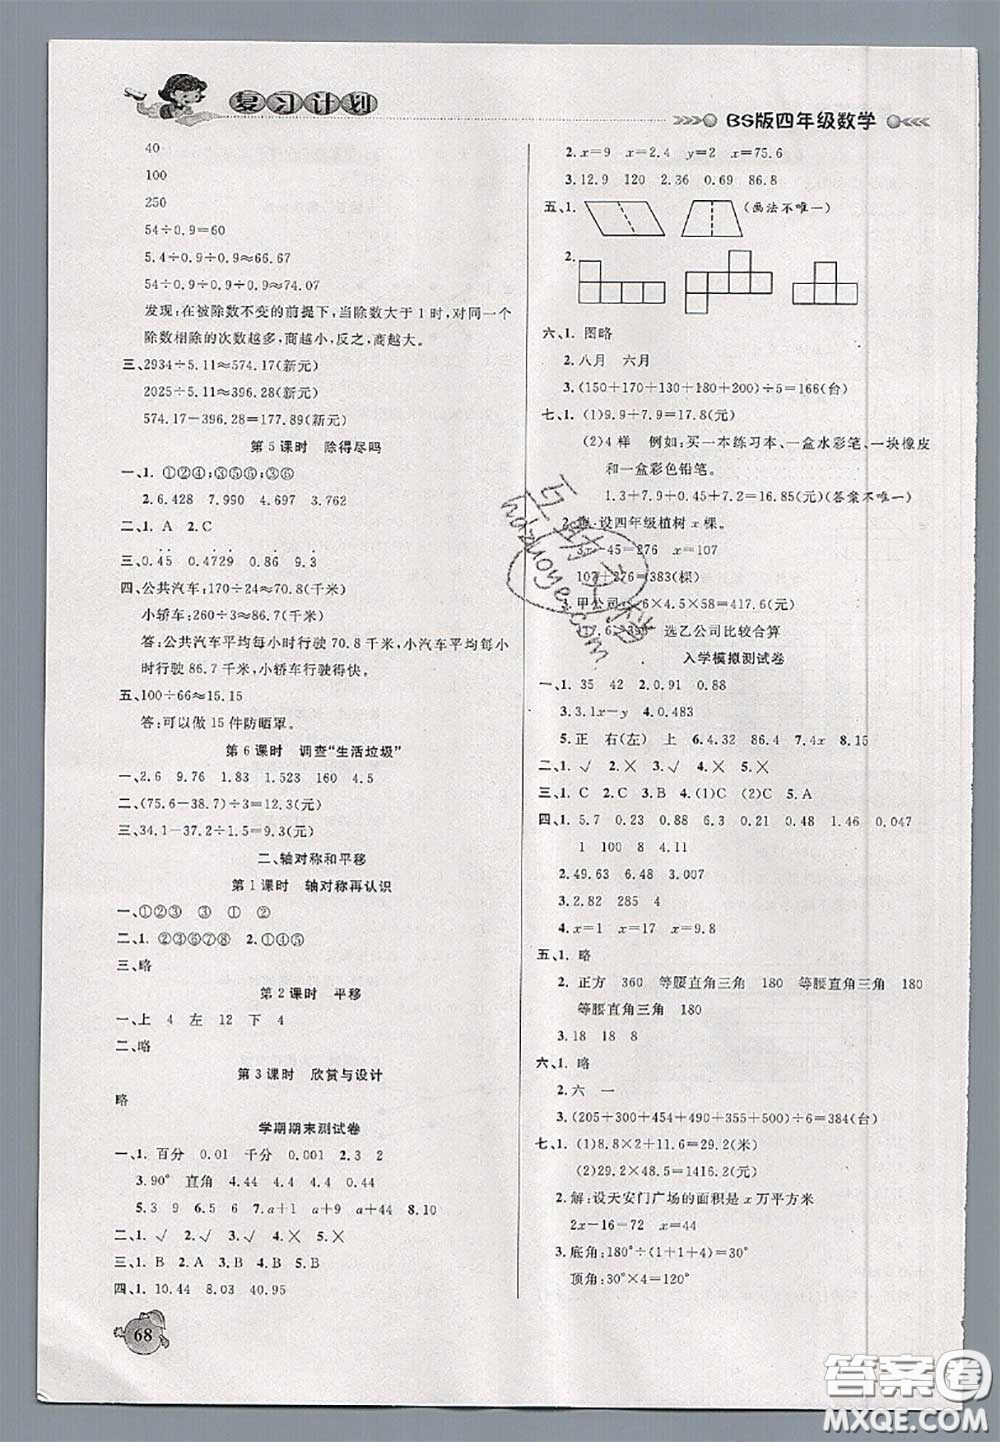 复习计划
BS版四年级数学
40
100
250
54÷0.9=60
5.4÷0.9÷0.9≈66.67
54÷0.9÷0.9÷0.9≈74.07
发现:在被除数不变的前提下,当除数大于1时,对同一个
除数相除的次数越多,商越小,反之,商越大。
三、2934÷5.11≈574.17(新元)
2025÷5.11≈396.28(新元)
574.17-396.28=177.89(新元)
第5课时 除得尽吗
一、1. ①②④;③⑤⑥;③⑥
2. 6.428 7.990 4.697 3.762
二、1. A 2. C
三、0.4̇5̇ 0.4729 0.86 9.3̇
四、公共汽车:170÷24≈70.8(千米)
小轿车:260÷3≈86.7(千米)
答:公共汽车平均每小时行驶70.8千米,小汽车平均每
小时行驶86.7千米,小轿车行驶得快。
五、100÷66≈15.15
答:可以做15件防晒罩。
第6课时 调查“生活垃圾”
一、2.6 9.76 1.83 1.523 160 4.5
二、(75.6-38.7)÷3=12.3(元)
三、34.1-37.2÷1.5=9.3(元)
二、轴对称和平移
第1课时 轴对称再认识
一、①②③ ③ ① ②
二、1. ②③⑥⑦⑧ 2. ①④⑤
三、略
第2课时 平移
一、上 4 左 12 下 4
二、略
第3课时 欣赏与设计
略
学期期末测试卷
一、1. 百分 0.01 千分 0.001 2. 3 2
3. 90° 直角 4. 44 4.4 4.40
5. 3 9 6. 5 6 7. a+1 a+9 a+44 8. 10
二、1. √ 2. √ 3. √ 4. × 5. √
三、1. B 2. A 3. B 4. B 5. B
四、1. 10.44 8.03 40.95
68
2. x=9 x=2.4 y=2 x=75.6
3. 12.9 120 2.36 0.69 86.8
五、1. (画法不唯一)
2.
六、1. 图略
2. 八月 六月
3. (150+170+130+180+200)÷5=166(台)
七、1. (1)9.9+7.9=17.8(元)
(2)4样 例如:买一本练习本、一盒水彩笔、一块橡皮
和一盒彩色铅笔。
1.3+7.9+0.5+7.15=16.85(元)(答案不唯一)
设四年级植树x棵。
-45=276 x=107
107+276=383(棵)
甲公司: ×6×4.5×58=417.6(元)
选乙公司比较合算
入学模拟测试卷
一、1. 35 42 2. 0.91 0.88
3. 3.1x-y 4. 0.483
5. 正 右(左) 上 6. 4.32 86.4 7. 4x 8. 15
二、1. √ 2. × 3. √ 4. × 5. ×
三、1. C 2. C 3. B 4. (1)C (2)C 5. A
四、1. 5.7 0.23 0.88 6.3 0.21 0.48 1.46 0.047
1 100 8 4.11
2. 49.63 6.48 3.007
3. 2.82 285 4
4. x=1 x=17 x=9
五、1. 略
2. 正方 360 等腰直角三角 180 等腰直角三角 180
等腰直角三角 180
3. 18 18 8
六、1. 略
2. 六 一
3. (205+300+454+490+355+500)÷6=384(台)
七、1. (1)8.8×2+11.6=29.2(米)
(2)29.2×48.5=1416.2(元)
2. 解:设天安门广场的面积是x万平方米
2x-16=72 x=44
3. 底角:180°÷(1+1+4)=30°
顶角:30°×4=120°
答案圈
MXQE.COM